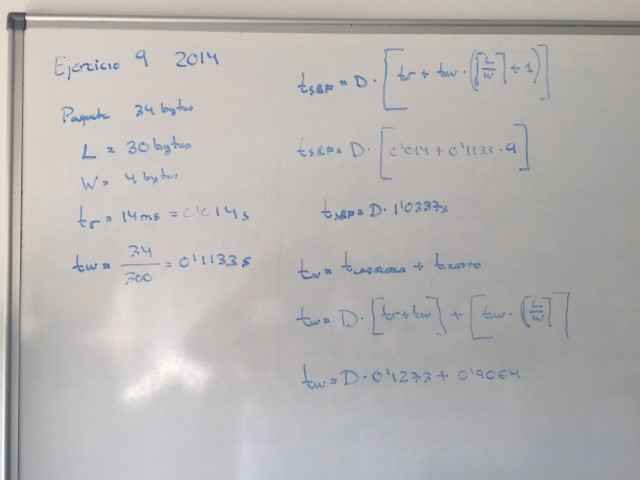 Ejercicio 9 2014
Paquete 34 bytes
L = 30 bytes
W = 4 bytes
tr = 14ms = 0'014s
tw = 34/300 = 0'1133s
tS&F = D · [tr + tw · (⌈L/W⌉ + 1)]
tS&F = D · [0'014 + 0'1133 · 9]
tS&F = D · 1'0337s
tw = tcabecera + tresto
tw = D · [tr + tw] + [tw · ⌈L/W⌉]
tw = D · 0'1273 + 0'9064